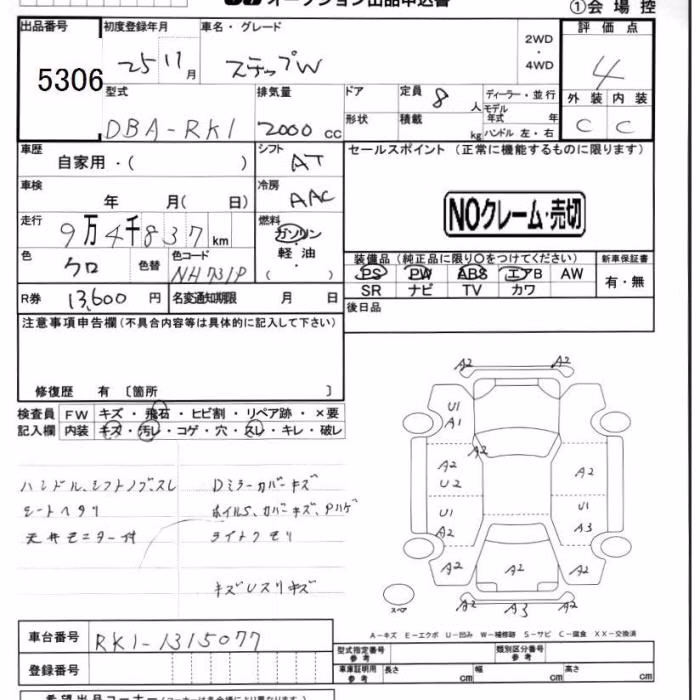 オークション出品申込書
①会場控
出品番号 5306
初度登録年月 25 11月
車名・グレード ステップW
2WD・4WD
評価点 4
外装 C 内装 C
型式 DBA-RK1
排気量 2000 cc
ドア
形状
定員 8 人
積載 kg
ディーラー・並行
モデル年式 年
ハンドル 左・右
車歴 自家用・( )
シフト AT
セールスポイント (正常に機能するものに限ります)
NOクレーム・売切
車検 年 月( 日)
冷房 AAC
走行 9万4千837km
燃料 ガソリン・軽油・( )
色 クロ 色替
色コード NH731P
装備品(純正品に限り○をつけてください)
新車保証書
PS PW ABS エアB AW
有・無
SR ナビ TV カワ
R券 13,600円
名変通知期限 月 日
後日品
注意事項申告欄(不具合内容等は具体的に記入して下さい)
修復歴 有 〔箇所 〕
検査員記入欄
FW キズ・飛石・ヒビ割・リペア跡・×要
内装 キズ・汚レ・コゲ・穴・スレ・キレ・破レ
ハンドル、シフトノブスレ
シートヘタリ
天井モニター付
Dミラーカバーキズ
ホイルS、カバーキズ、Pハゲ
ライトクモリ
キズUスリキズ
A2 A2
U1
A1
A2
A2
U2
A2
U1
A2
U1
A3
A2 A2 A2
A2 A3 A2
スペア
A-キズ E-エクボ U-凹み W-補修跡 S-サビ C-腐食 XX-交換済
車台番号 RK1-1315077
登録番号
型式指定番号 参考
類別区分番号 参考
車庫証明用 参考
長さ cm 幅 cm 高さ cm
希望出品コーナー